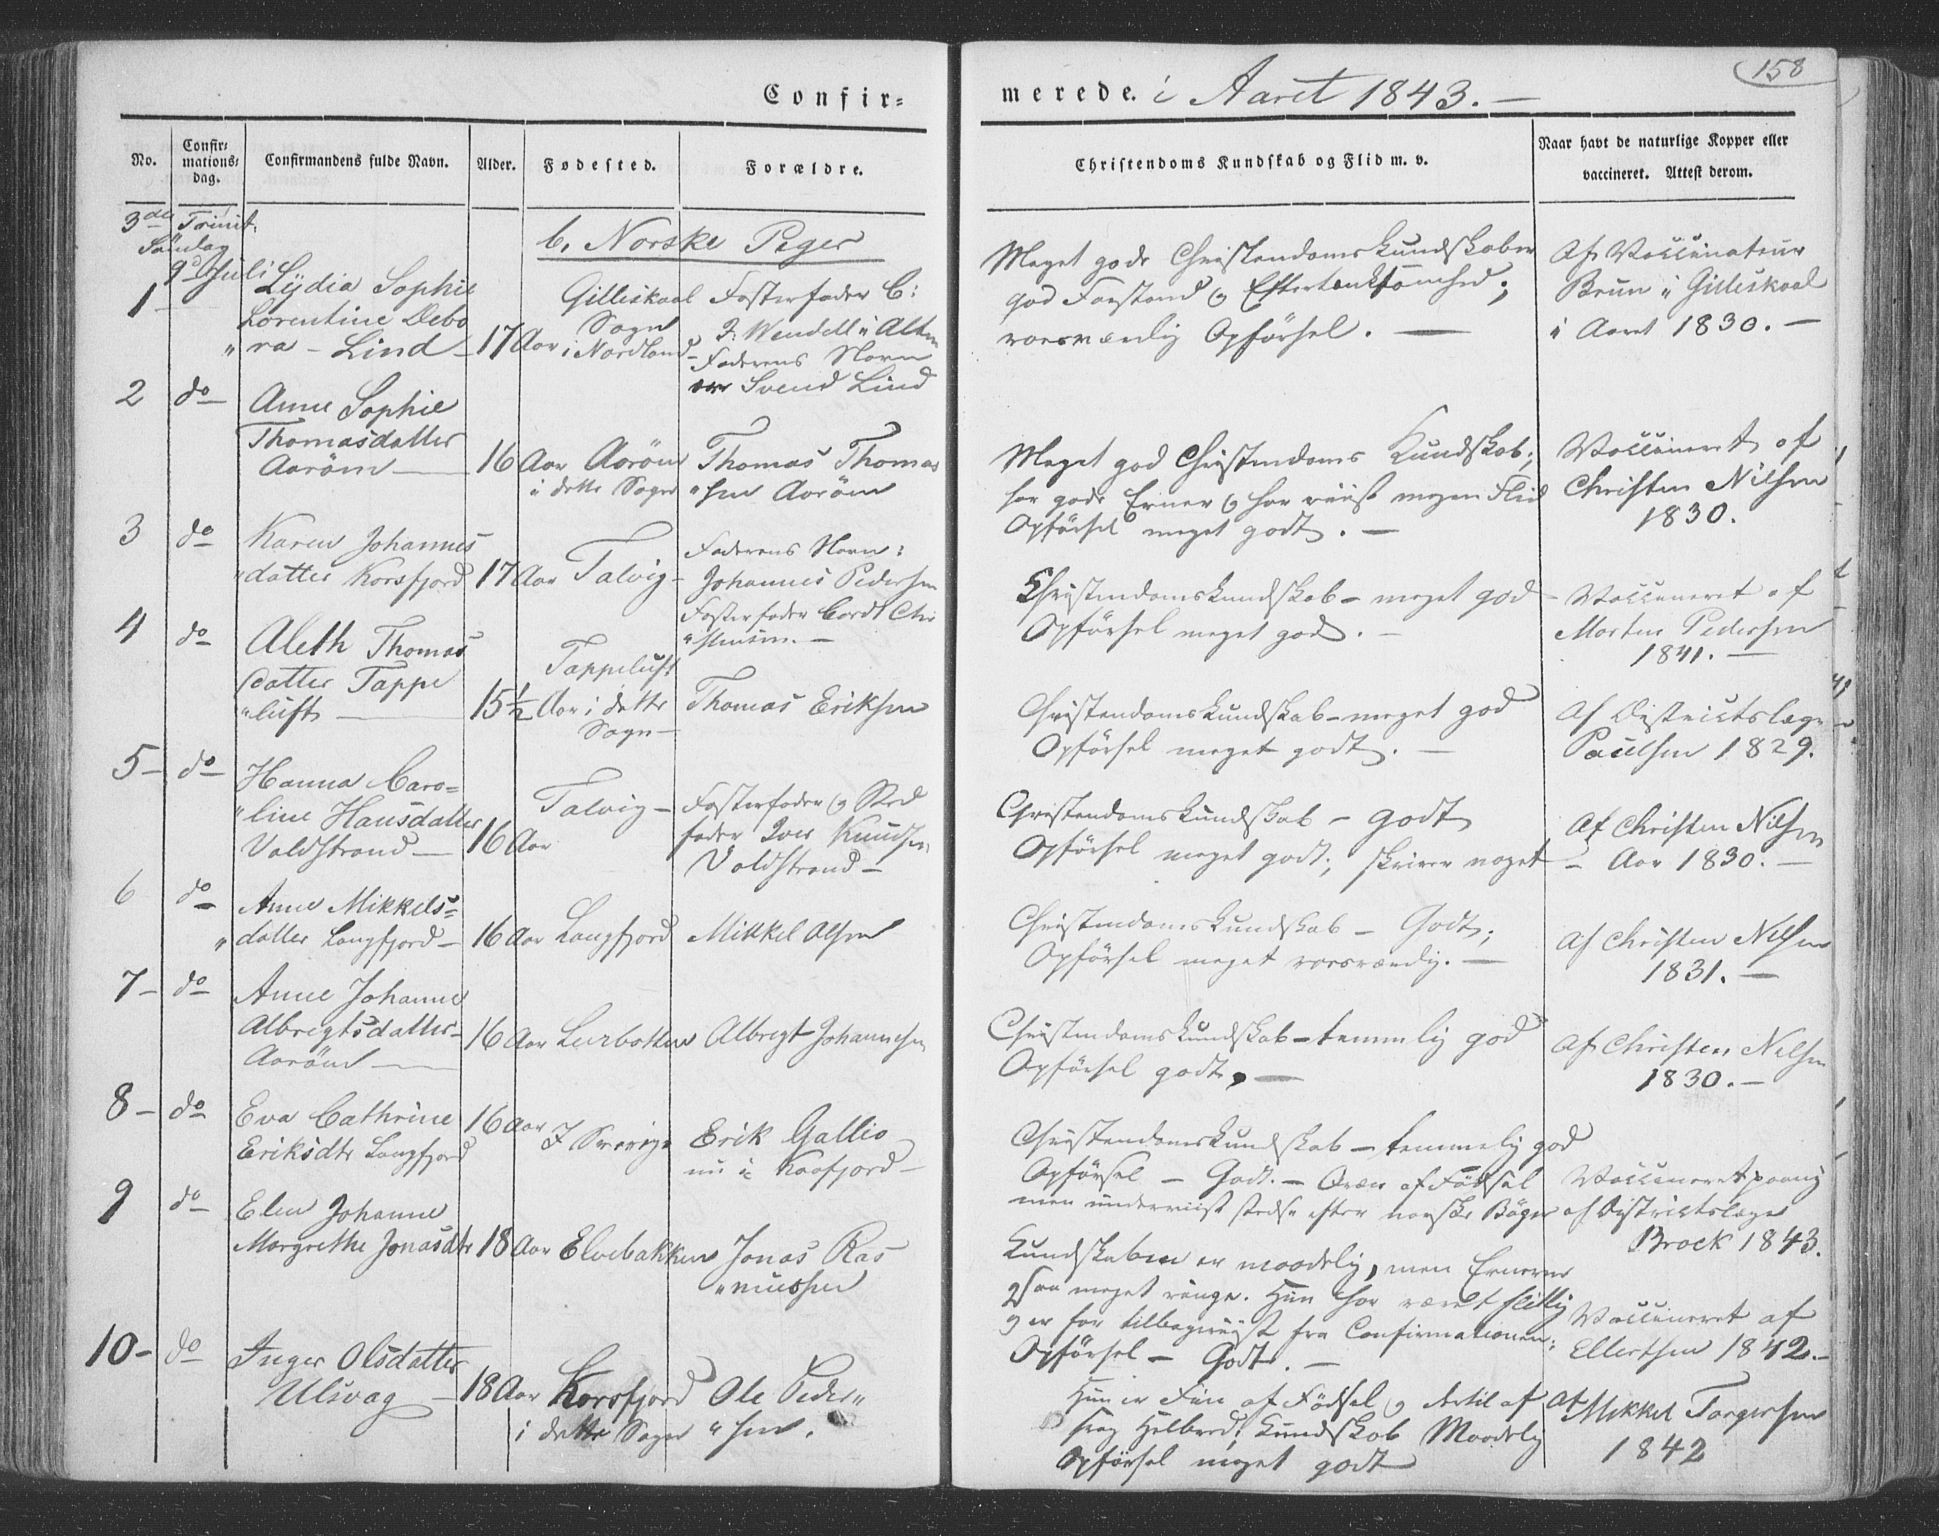 Confir=
merede. i Aaret 1843. —
158
No.
Confir=
mations=
dag.
Confirmandens fulde Navn.
Alder.
Fødested.
Forældre.
Christendoms Kundskab og Flid m. v.
Naar havt de naturlige Kopper eller
vaccineret. Attest derom.
3die Trinit.
Søndag
9d Juli
b. Norske Piger
1 —
Lydia Sophie
Lorentine Debo
" ra - Lind —
17 Aar
Gilleskaal
Sogn
i Nordland
Fosterfader C:
J: Wendell i Alten
Faderens Navn
er Svend Lind
Meget gode Christendomskundskaber
god Forstand og Eftertænksomhed;
roesværdig Opførsel. —
Af Vaccinateur
Brun i Gilleskaal
i Aaret 1830. —
2
do
Anne Sophie
Thomasdatter
Aarøen —
16 Aar
Aarøen
i dette Sogn
Thomas Thomas
"sen Aarøen
Meget god Christendoms Kundskab;
har gode Evner og har viist megen Flid
Opførsel meget godt. —
Vaccineret af
Christen Nilsen
1830.
3
do
Karen Johannes
"datter Korsfjord
17 Aar
Talvig —
Faderens Navn:
Johannes Pedersen
Fosterfader Cordt Chri
"stensen. —
Christendomskundskab - meget god
Opførsel meget god. —
Vaccineret af
Morten Pedersen
1841. —
4
do
Aleth Thomas
datter Tappe
"luft —
15½ Aar
Tappeluft
i dette
Sogn —
Thomas Eriksen
Christendomskundskab - meget god
Opførsel meget godt. —
Af Districtslæge
Paulsen 1829.
5 —
do
Hanna Caro=
"line Hansdatter
Voldstrand —
16 Aar
Talvig —
Fosterfader og Sted
fader Iver Knudsen
Voldstrand —
Christendomskundskab - godt
Opførsel meget godt; skriver noget
Af Christen Nilsen
— Aar 1830. —
6
do
Anne Mikkels=
" datter Langfjord —
16 Aar
Langfjord
Mikkel Olsen
Christendomskundskab - Godt;
Opførsel meget roesværdig. —
Af Christen Nilsen
1831. —
7 —
do
Anne Johanne
Albregtsdatter
Aarøen —
16 Aar
Lerbotten
Albregt Johannesen
Christendomskundskab - temmelig god
Opførsel godt. —
Af Christen Nilsen
1830. —
8 —
do
Eva Cathrine
Eriksdtr Langfjord
16 Aar
I Sverige
Erik Gallio
nu i Kaafjord —
Christendomskundskab - temmelig god
Opførsel - Godt. — Qvæn af Fødsel
men underviist stedse efter norske Bøger
Vaccineret paany
af Districtslæge
Brock 1843.
9
do
Elen Johanne
Margrethe Jonasdtr
18 Aar
Elvebakken
Jonas Ras
"mussen
Kundskaben er maadelig, men Evnerne
saa meget ringe. Hun har været flittig
og er før tilbageviist fra Confirmationen;
Opførsel - Godt. —
Vaccineret af
Ellertsen 1842. —
10 —
do
Inger Olsdatter
Ulsvag —
18 Aar
Korsfjord
i dette Sogn
Ole Peder"
"sen.
Hun er Fin af Fødsel og dertil af
svag Helbred; Kundskab Maadelig
Opførsel meget godt
Af Mikkel Torgersen
1842